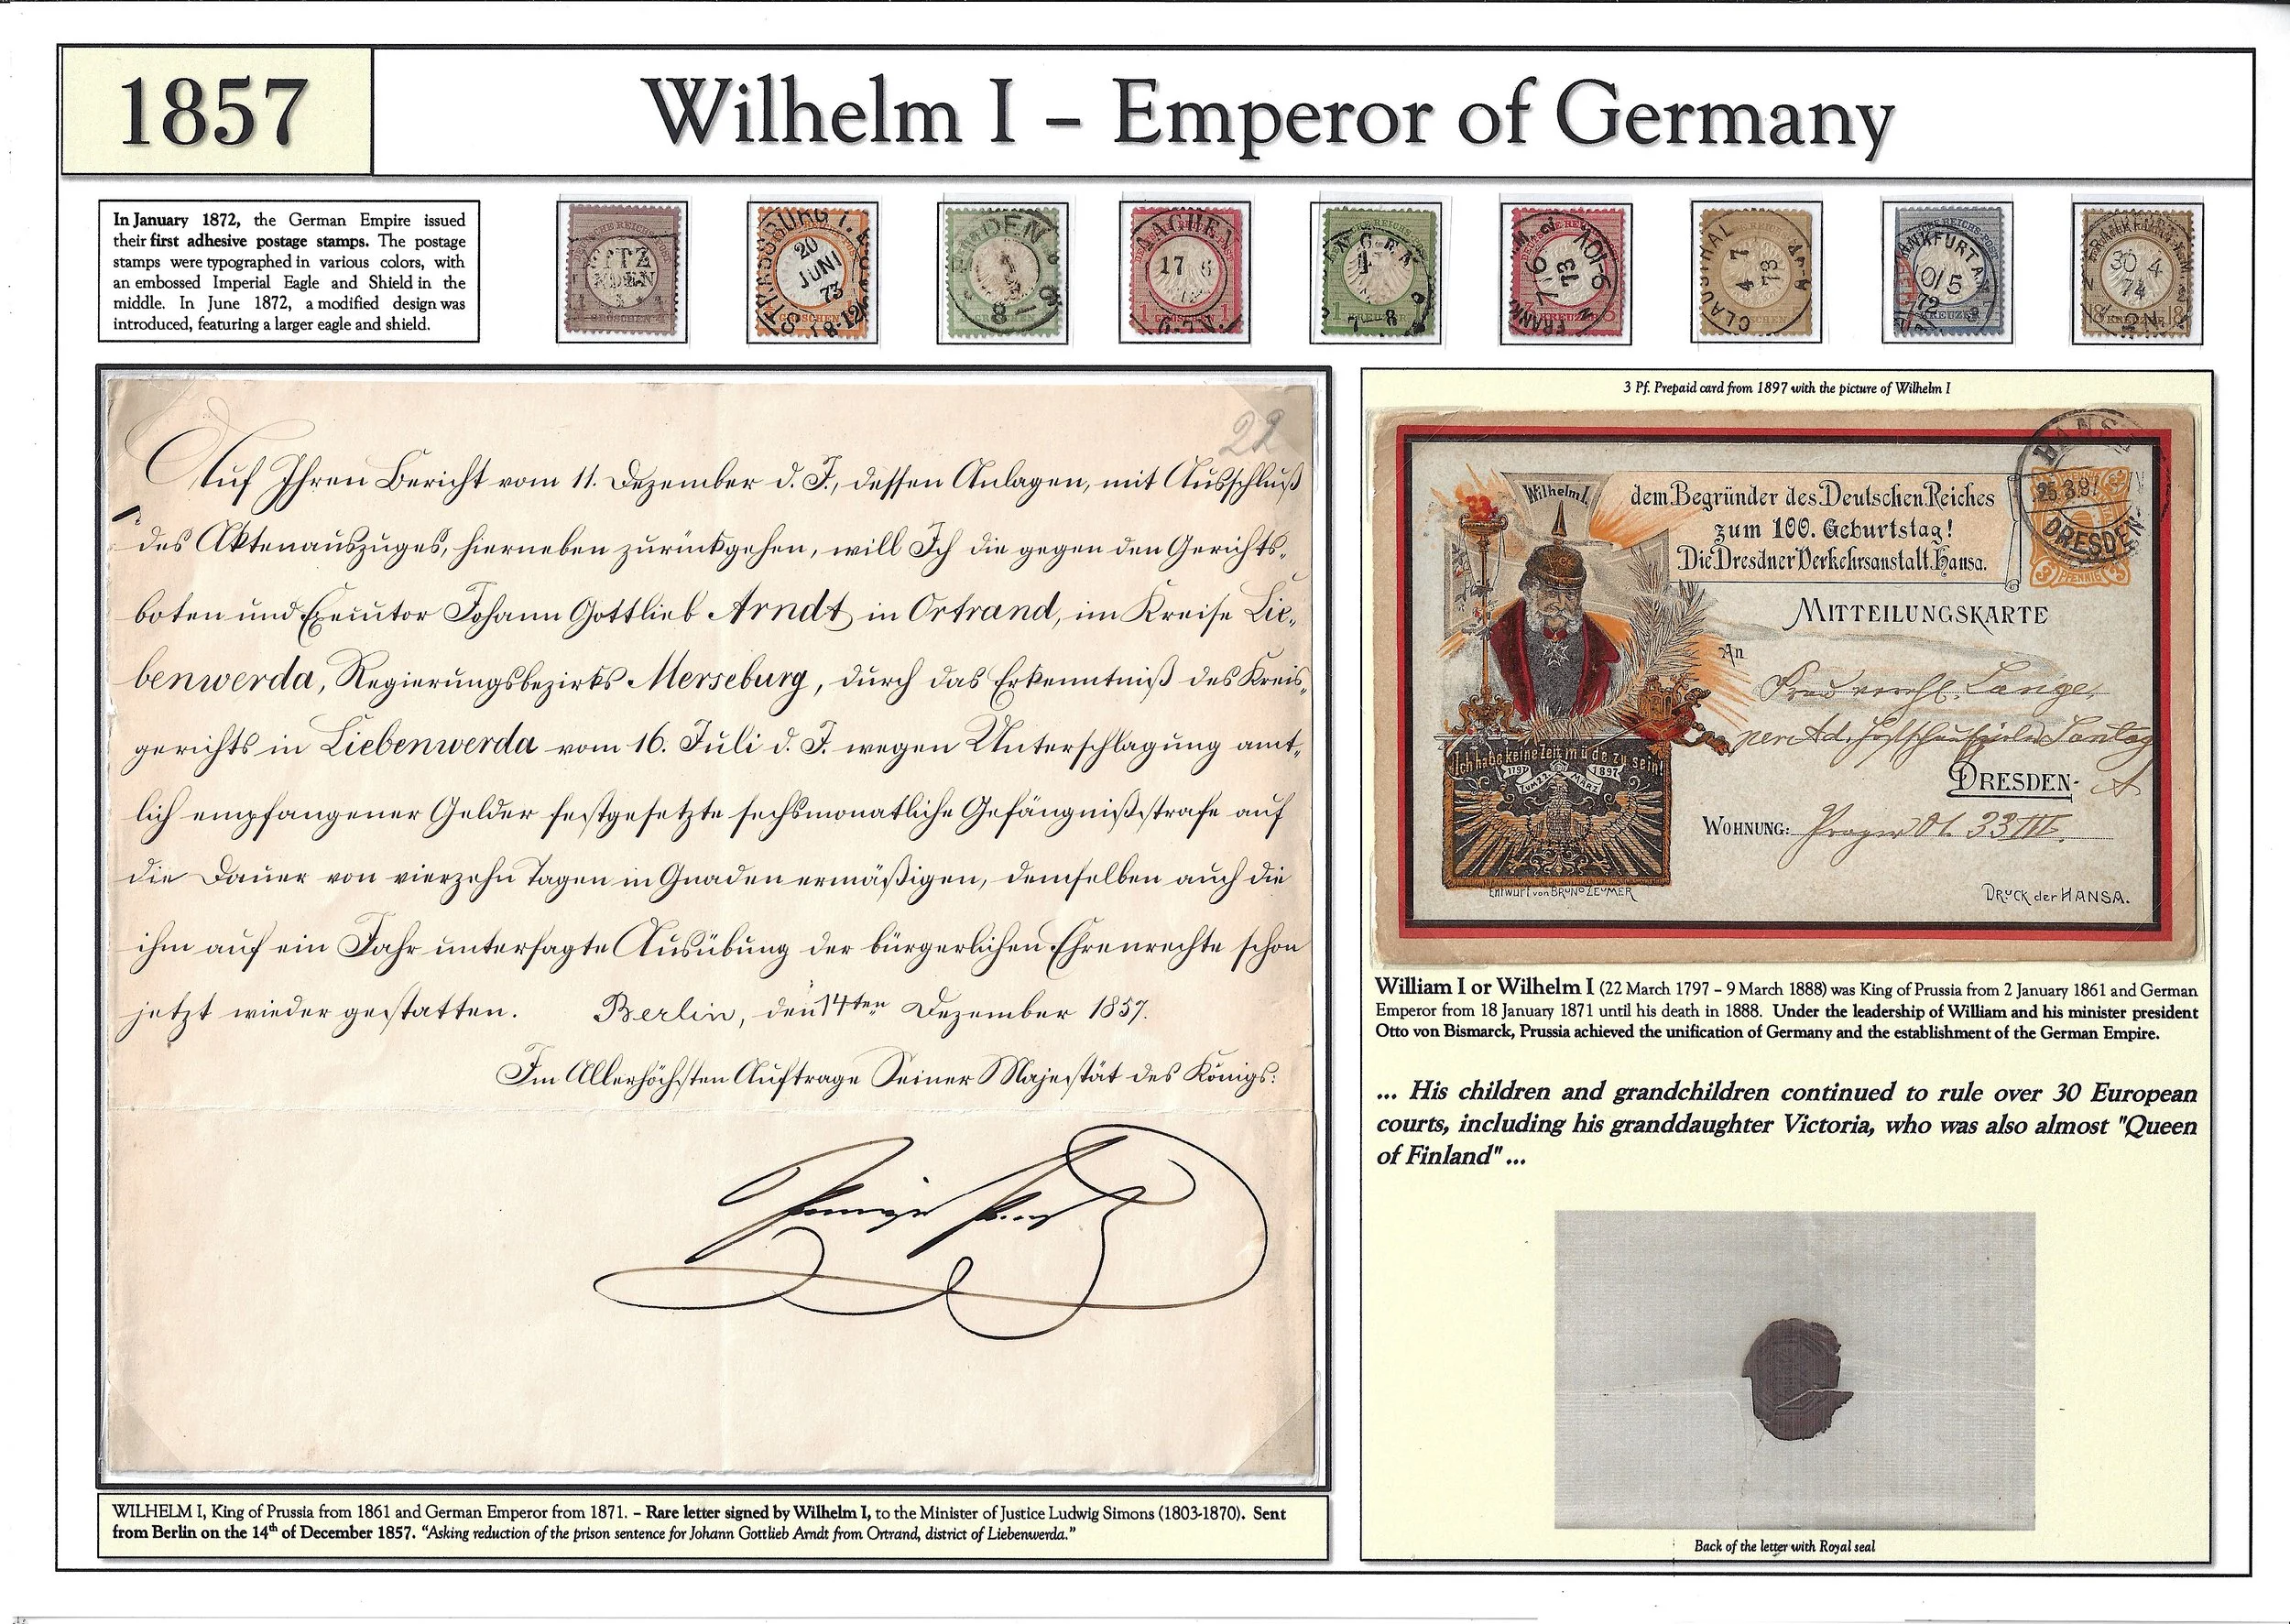 1857
Wilhelm I – Emperor of Germany
In January 1872, the German Empire issued
their first adhesive postage stamps. The postage
stamps were typographed in various colors, with
an embossed Imperial Eagle and Shield in the
middle. In June 1872, a modified design was
introduced, featuring a larger eagle and shield.
STRASSBURG I. E.
20
JUNI
73
8-12
GROSCHEN
EMDEN
AACHEN
17 6
1 GROSCHEN 1
KREUZER
7 8
FRANK
7 6
73
CLAUSTHAL
4 7
73
FRANKFURT A.
10/5
72
KREUZER
30 4
74
18 KREUZER 18
22
Auf Ihren Bericht vom 11. Dezember d. J., dessen Anlagen, mit Ausschluß
des Aktenauszuges, hierneben zurückgehen, will Ich die gegen den Gerichts-
boten und Executor Johann Gottlieb Arndt in Ortrand, im Kreise Lie-
benwerda, Regierungsbezirks Merseburg, durch das Erkenntniß des Kreis-
gerichts in Liebenwerda vom 16. Juli d. J. wegen Unterschlagung amt-
lich empfangener Gelder festgesetzte sechsmonatliche Gefängnißstrafe auf
die Dauer von vierzehn Tagen in Gnaden ermäßigen, demselben auch die
ihm auf ein Jahr untersagte Ausübung der bürgerlichen Ehrenrechte schon
jetzt wieder gestatten. Berlin, den 14ten Dezember 1857.
Im Allerhöchsten Auftrage Seiner Majestät des Königs:
WILHELM I, King of Prussia from 1861 and German Emperor from 1871. – Rare letter signed by Wilhelm I, to the Minister of Justice Ludwig Simons (1803-1870). Sent
from Berlin on the 14th of December 1857. “Asking reduction of the prison sentence for Johann Gottlieb Arndt from Ortrand, district of Liebenwerda.”
3 Pf. Prepaid card from 1897 with the picture of Wilhelm I
Wilhelm I.
dem Begründer des Deutschen Reiches
zum 100. Geburtstag!
Die Dresdner Verkehrsanstalt Hansa.
HANSA
25.3.97
DRESDEN
3 PFENNIG 3
MITTEILUNGSKARTE
An
Lange,
DRESDEN- A
WOHNUNG: 33 III.
Ich habe keine Zeit müde zu sein!
1797 1897
ZUM 22. MÄRZ
Entwurf von BRUNO ZEUMER
DRUCK der HANSA.
William I or Wilhelm I (22 March 1797 – 9 March 1888) was King of Prussia from 2 January 1861 and German
Emperor from 18 January 1871 until his death in 1888. Under the leadership of William and his minister president
Otto von Bismarck, Prussia achieved the unification of Germany and the establishment of the German Empire.
... His children and grandchildren continued to rule over 30 European
courts, including his granddaughter Victoria, who was also almost "Queen
of Finland" ...
Back of the letter with Royal seal